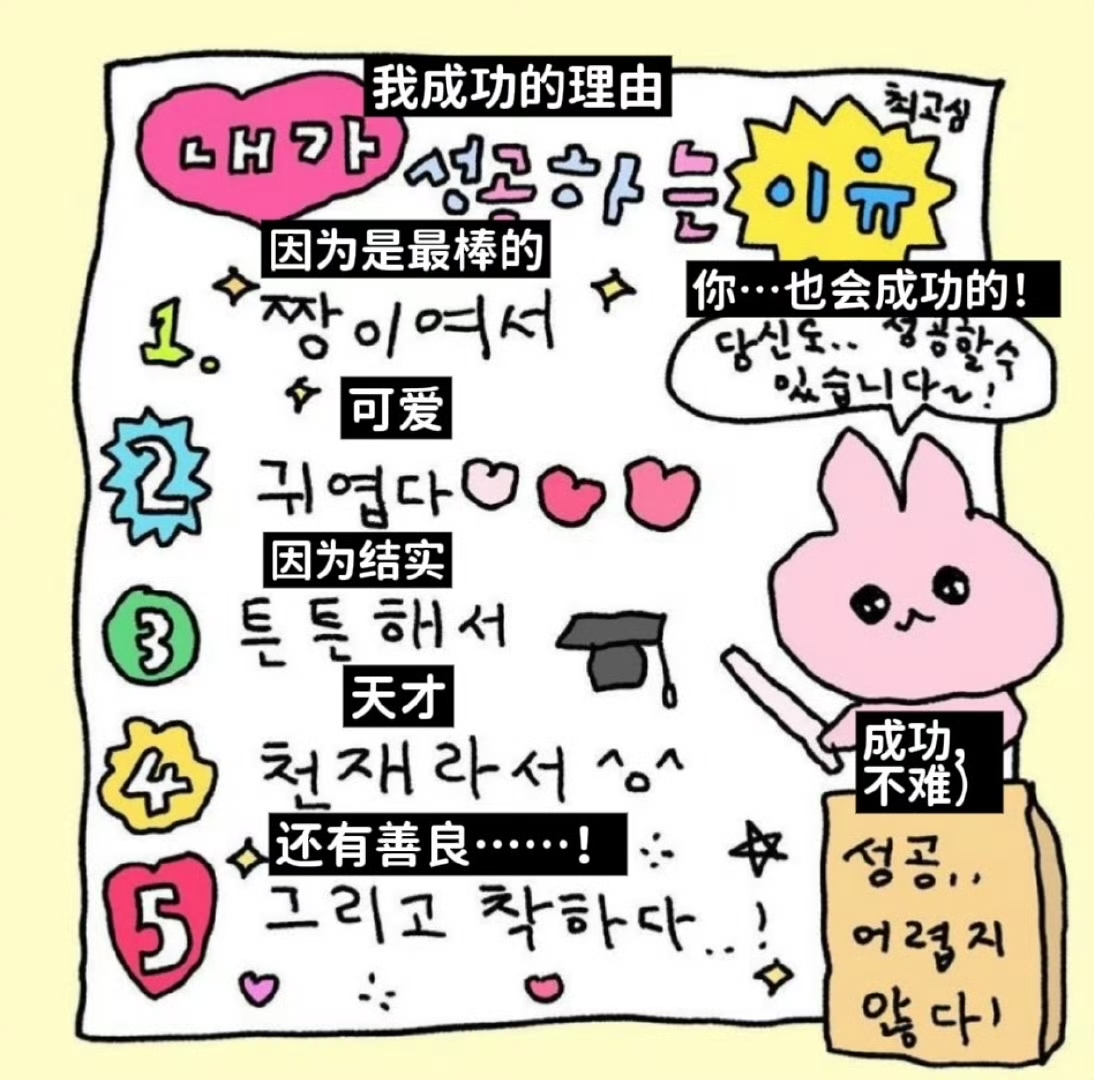 我成功的理由
최고심
내가 성공하는 이유
因为是最棒的
1. 짱이여서
你…也会成功的！
당신도.. 성공할수
있습니다~!
可爱
2 귀엽다
因为结实
3 튼튼해서
天才
4 천재라서 ^o^
还有善良……！
5 그리고 착하다..!
成功,
不难）
성공..
어렵지
않다!